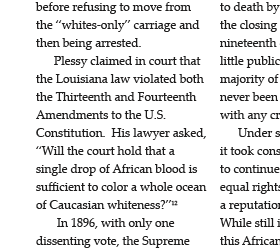 before refusing to move from
the “whites-only” carriage and
then being arrested.
Plessy claimed in court that
the Louisiana law violated both
the Thirteenth and Fourteenth
Amendments to the U.S.
Constitution. His lawyer asked,
“Will the court hold that a
single drop of African blood is
sufficient to color a whole ocean
of Caucasian whiteness?”¹²
In 1896, with only one
dissenting vote, the Supreme
to death by
the closing
nineteenth
little public
majority of
never been
with any cr
Under s
it took cons
to continue
equal rights
a reputation
While still i
this African